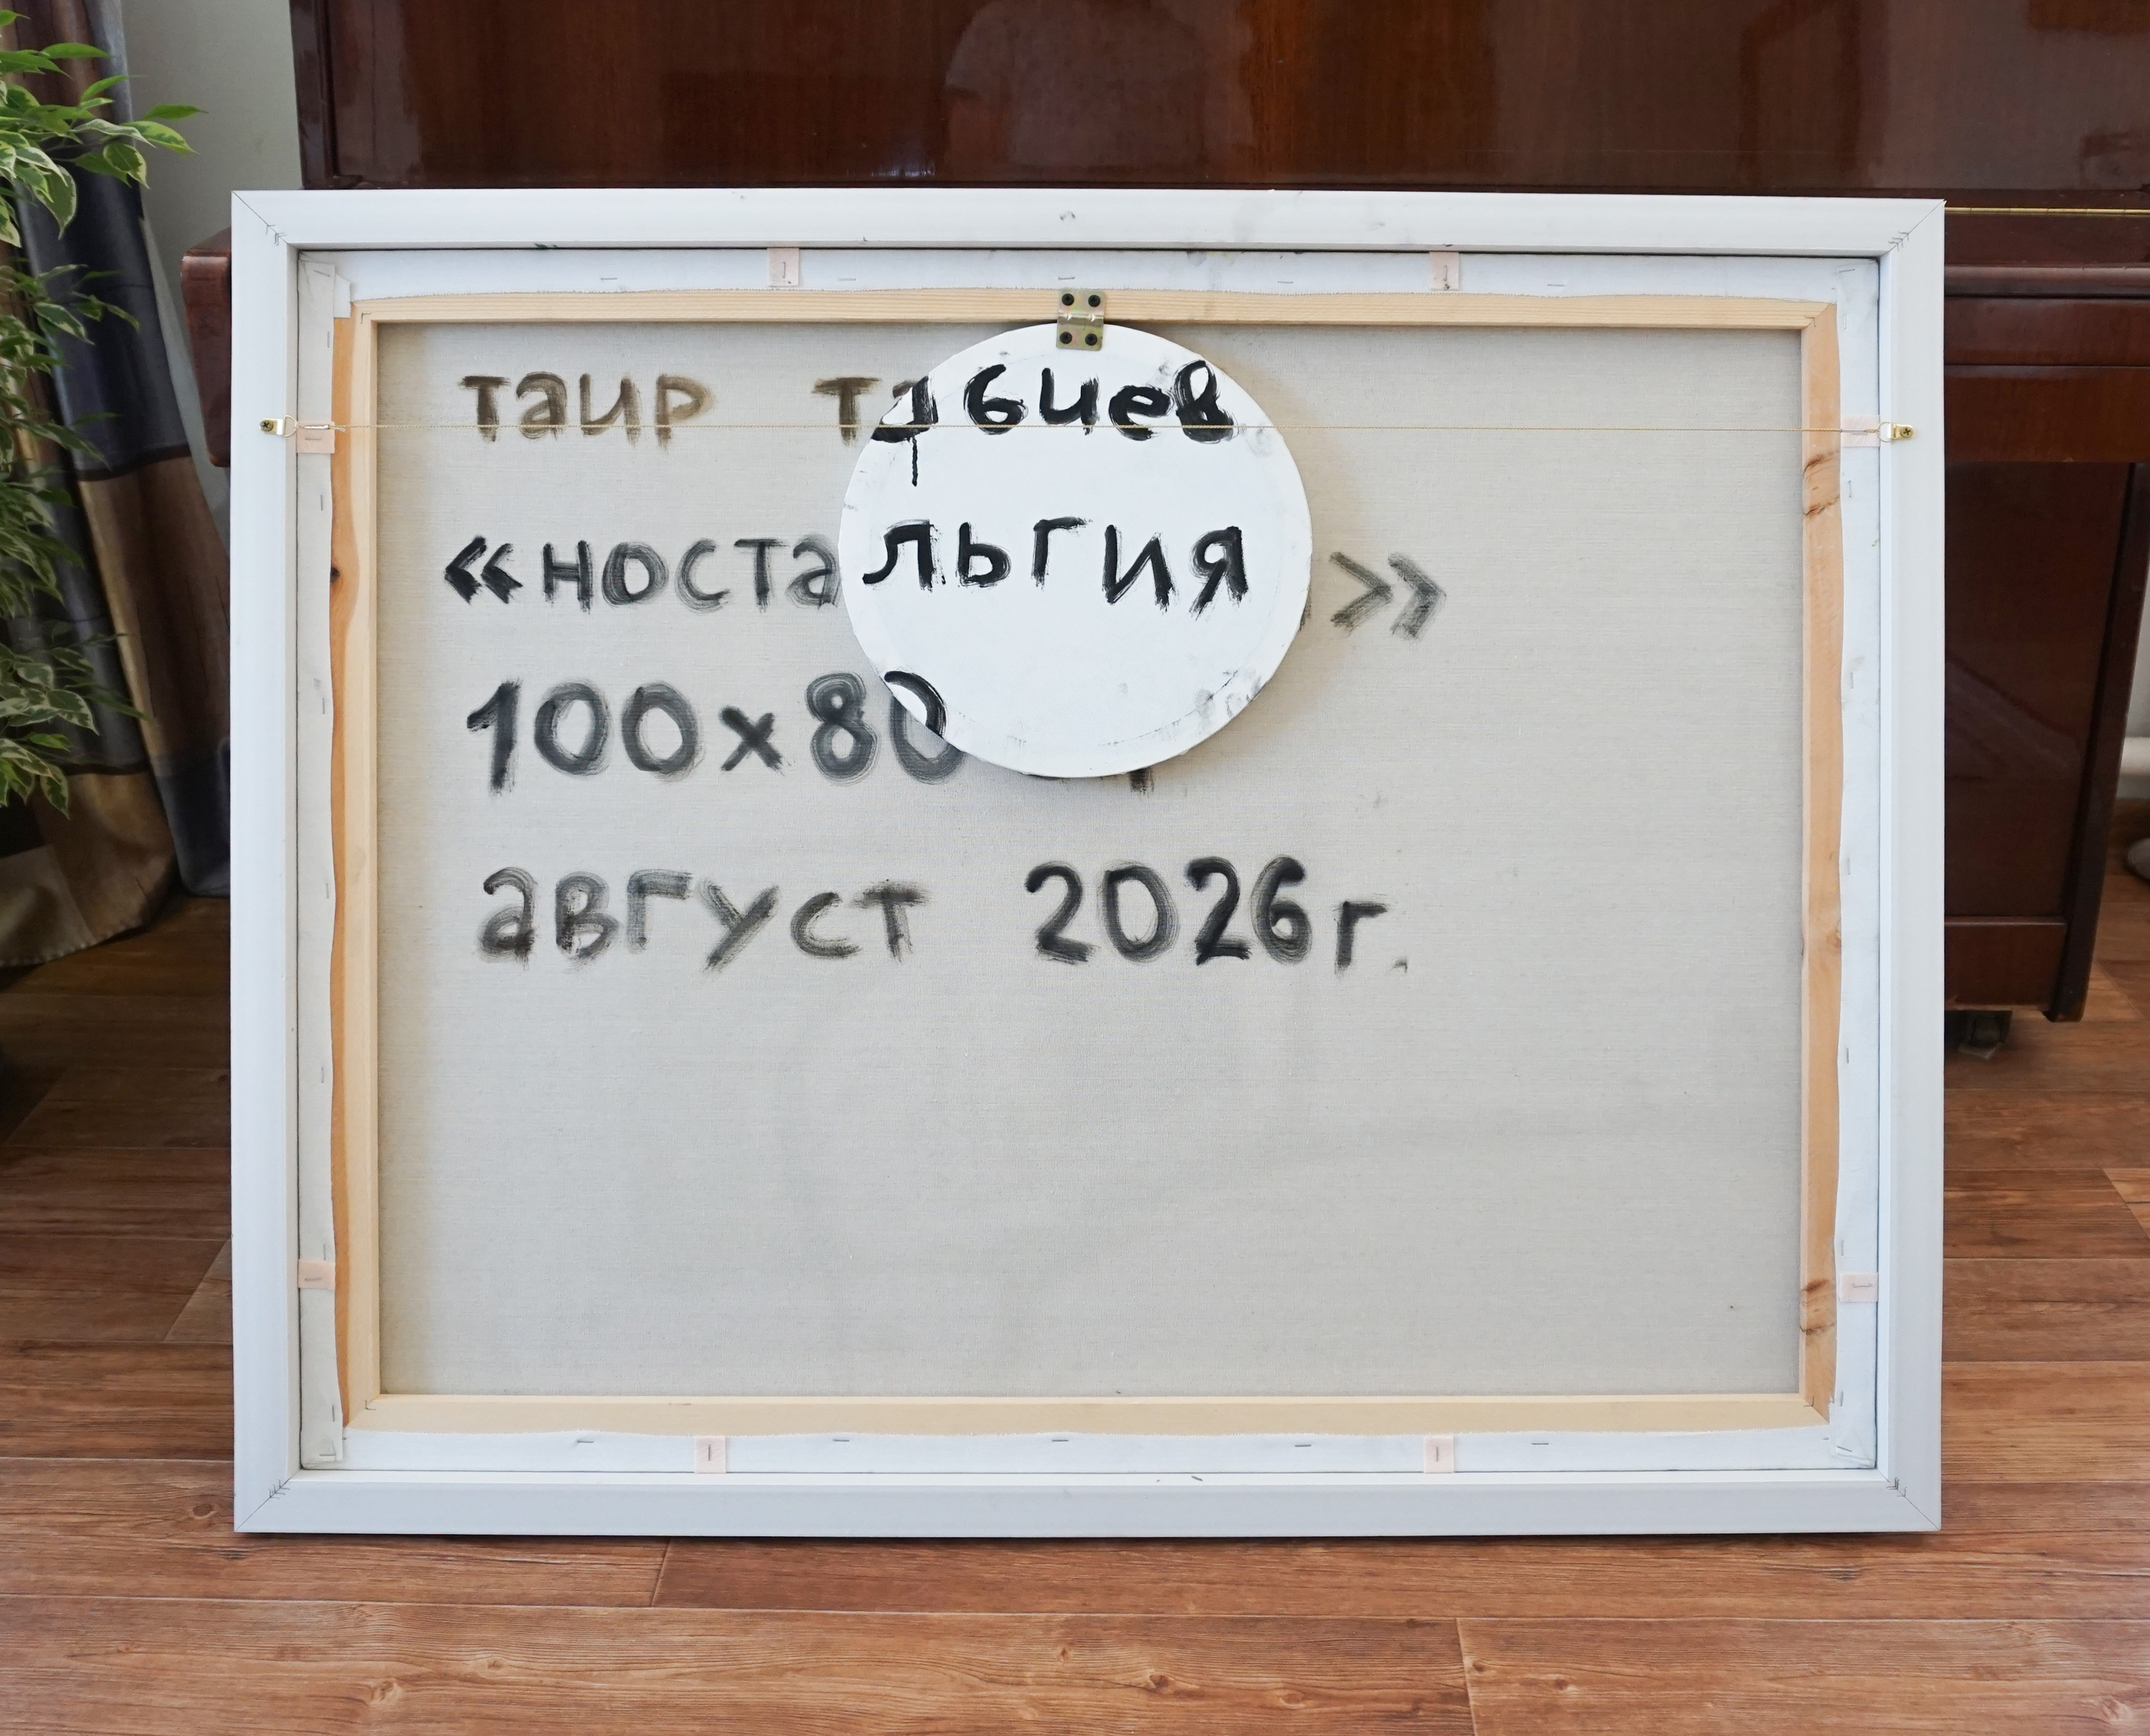 таир табиев
«ностальгия»
100×80
август 2026г.